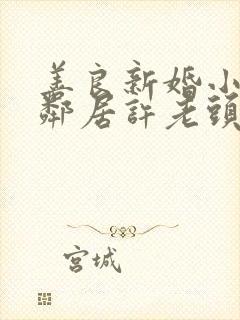 善良新婚小
鄰居許老頭
宮城